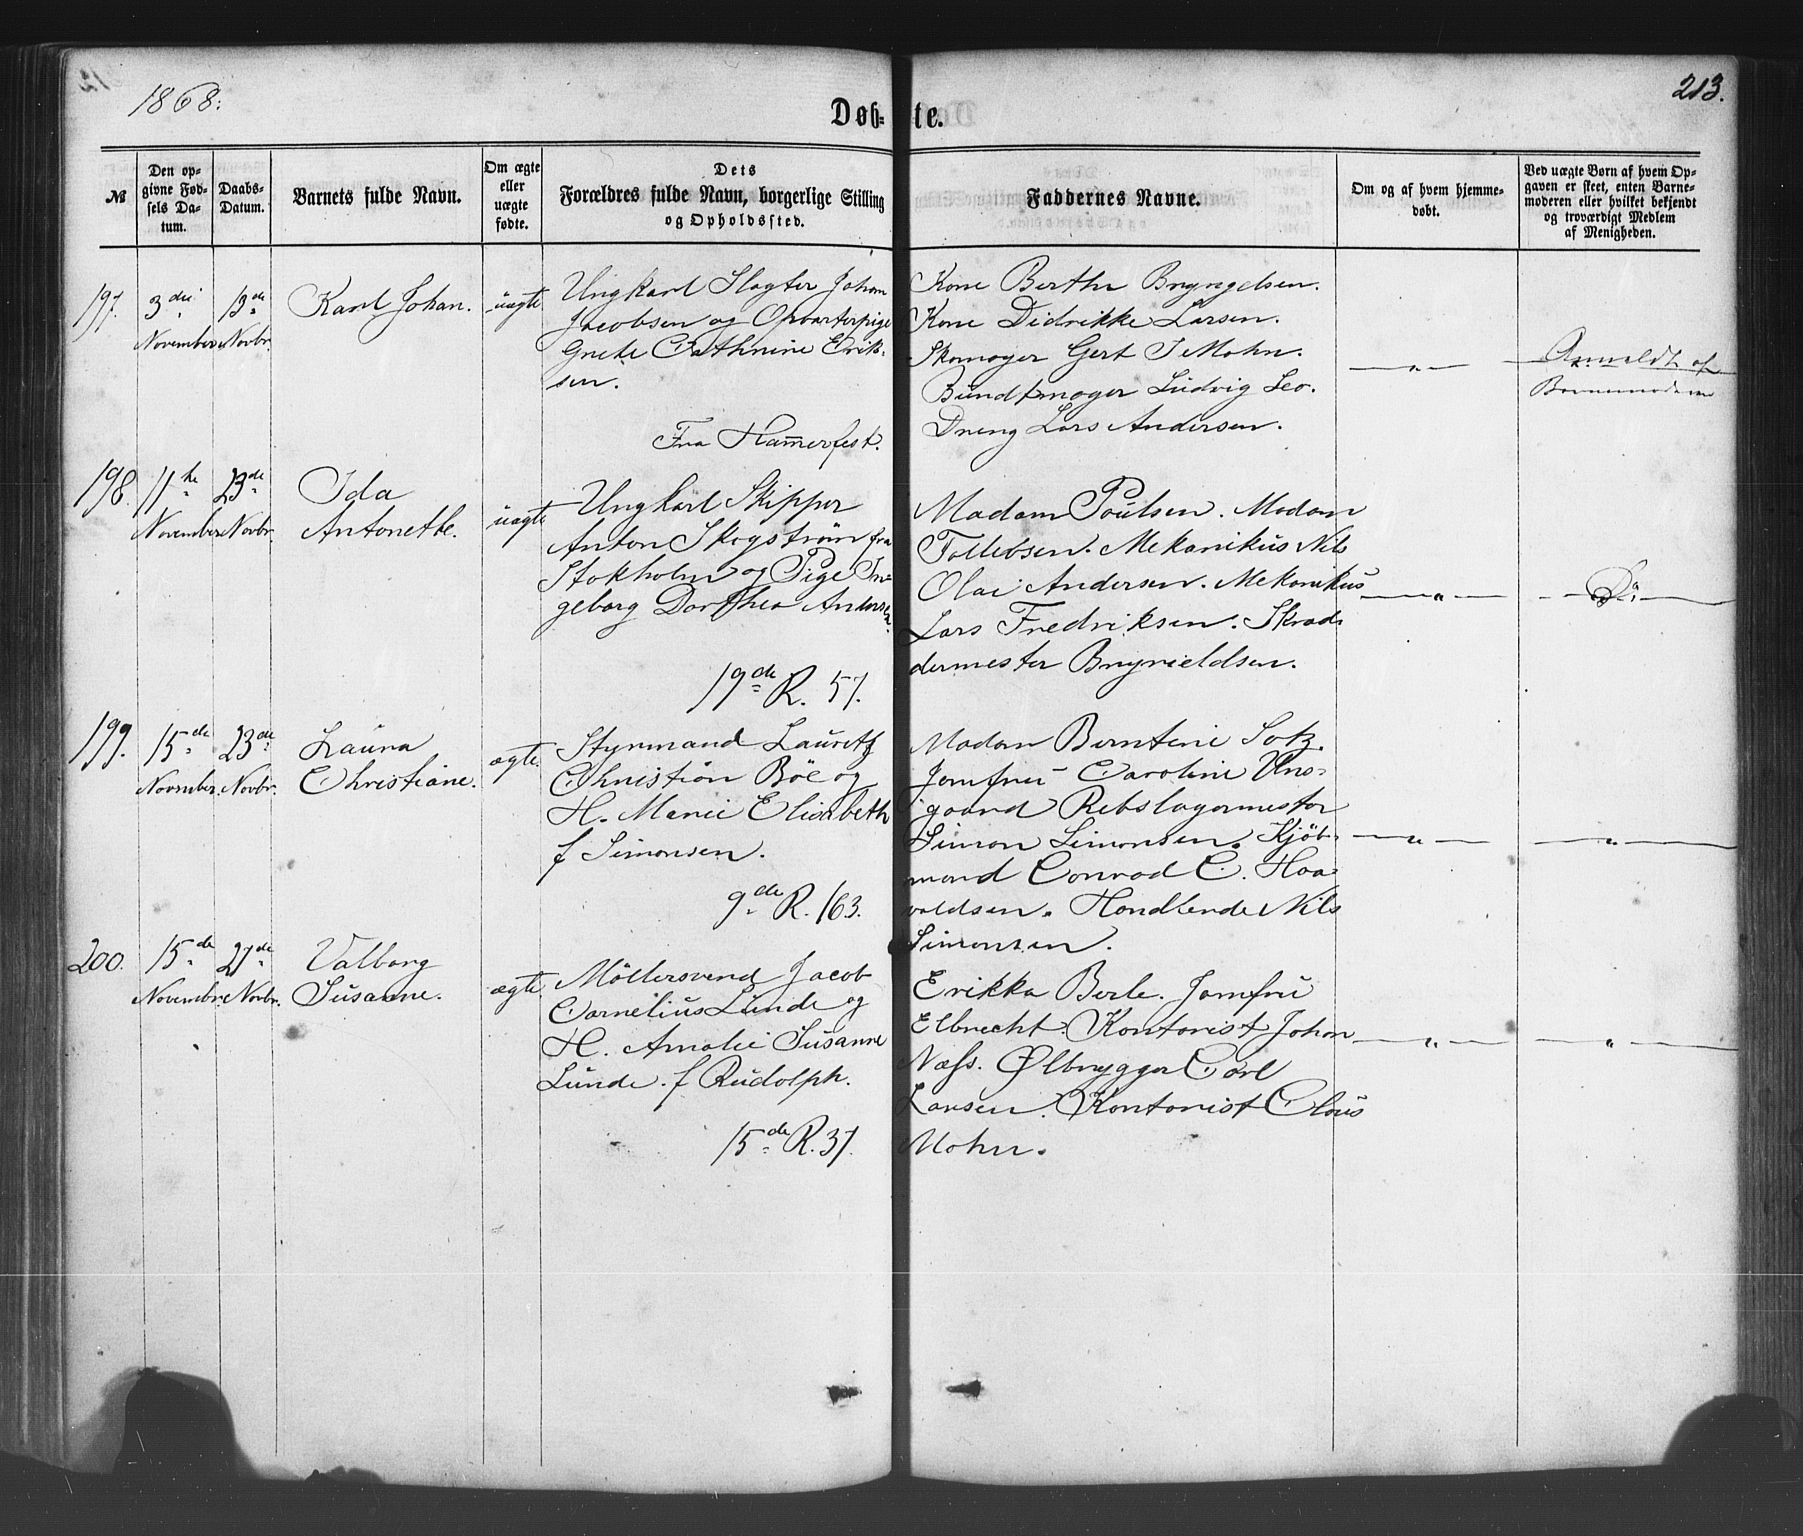 1868.
213.
Døb-te.
№
Den op-
givne Fød-
sels Da-
tum.
Daabs-
Datum.
Barnets fulde Navn.
Om ægte
eller
uægte
fødte.
Dets
Forældres fulde Navn, borgerlige Stilling
og Opholdssted.
Faddernes Navne.
Om og af hvem hjemme-
døbt.
Ved uægte Børn af hvem Op-
gaven er skeet, enten Barne-
moderen eller hvilket bekjendt
og troværdigt Medlem
af Menigheden.
197.
3die
November
13de
Novbr.
Karl Johan.
uægte
Ungkarl Slagter Johan
Jacobsen og Opvarterpige
Grete Cathrine Erik-
sen.
Fra Hammerfest.
Kone Berthe Brynyelsen.
Kone Didrikke Larsen.
Skomager Gert J Mohn.
Bundtmager Ludvig Leo.
Dreng Lars Andersen.
"
Anmeldt af
Barnemoderen
198.
11te
November
23de
Novbr.
Ida
Antonette.
uægte
Ungkarl Skipper
Anton Skogstrøm fra
Stokholm og Pige In-
geborg Dorthea Andersen.
19de R. 57.
Madam Poulsen. Madam
Tollefsen. Mekanikus Nils
Olai Andersen. Mekanikus
Lars Fredriksen. Skræd-
dermester Brynieldsen.
"
Do
199.
15de
November
23de
Novbr.
Laura
Christiane.
ægte
Styrmand Lauritz
Christian Böe og
H. Marie Elisabeth
f Simonsen.
9de R. 163.
Madam Berntine Sotz.
Jomfru Caroline Uns-
gaard Rebslagermester
Simon Simonsen. Kjøb-
mand Conrad C. Haa-
valdsen. Handlende Nils
Simonsen.
"
"
200.
15de
Novembr.
27de
Novbr.
Valborg
Susanne.
ægte
Möllersvend Jacob
Cornelius Lunde og
H. Amalie Susanne
Lunde. f Rudolph.
15de R. 37.
Erikka Berle. Jomfru
Elbrecht. Kontorist Johan
Næss. Ølbrygger Carl
Larsen. Kontorist Claus
Mohn.
"
"